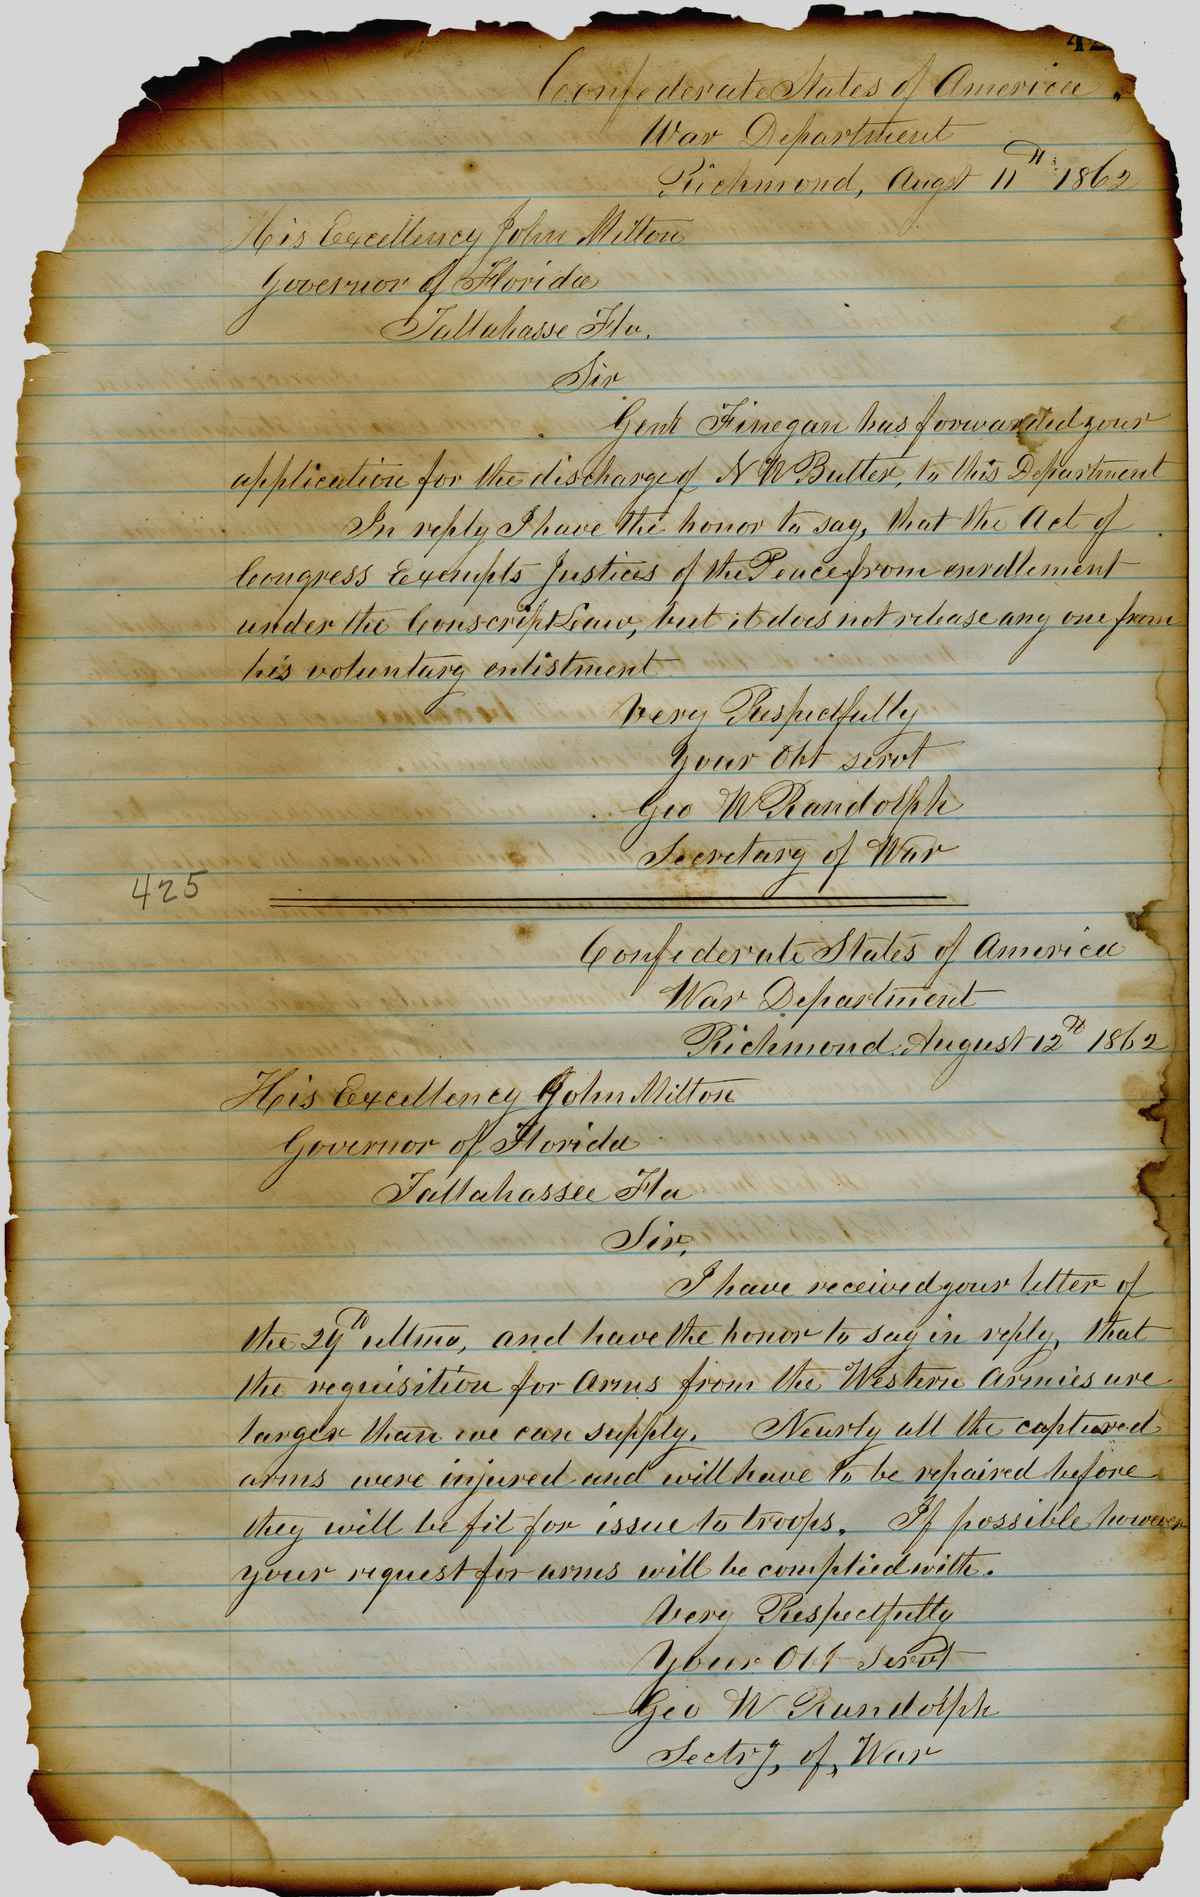 Confederate States of America
War Department
Richmond, Augst 11th 1862
His Excellency John Milton
Governor of Florida
Tallahasse Fla.
Sir
Genl Finegan has forwarded your
application for the discharge of N W Butler, to this Department
In reply I have the honor to say, that the Act of
Congress Exempts Justices of the Peace from enrollment
under the Conscript Law, but it does not release any one from
his voluntary enlistment
Very Respectfully
Your Obt servt
Geo W Randolph
Secretary of War
425
Confederate States of America
War Department
Richmond August 12th 1862
His Excellency John Milton
Governor of Florida
Tallahassee Fla
Sir,
I have received your letter of
the 29th ultmo, and have the honor to say in reply, that
the requisition for Arms from the Western Armies are
larger than we can supply. Nearly all the captured
arms were injured and will have to be repaired before
they will be fit for issue to troops. If possible however
your request for arms will be complied with.
Very Respectfully
Your Obt Servt
Geo W Randolph
Sectry, of, War